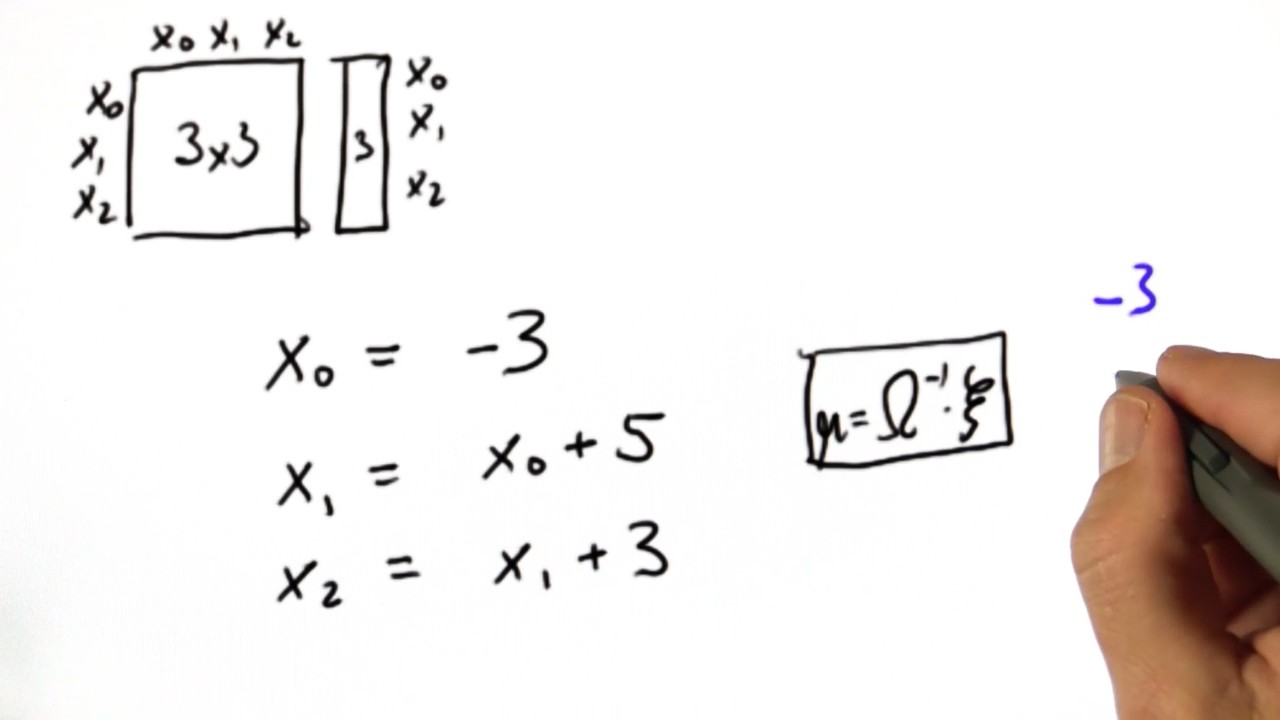 x₀ x₁ x₂
x₀
x₁
x₂
3x3
3
x₀
x₁
x₂
x₀ = -3
x₁ = x₀ + 5
x₂ = x₁ + 3
μ = Ω⁻¹ · ξ
-3